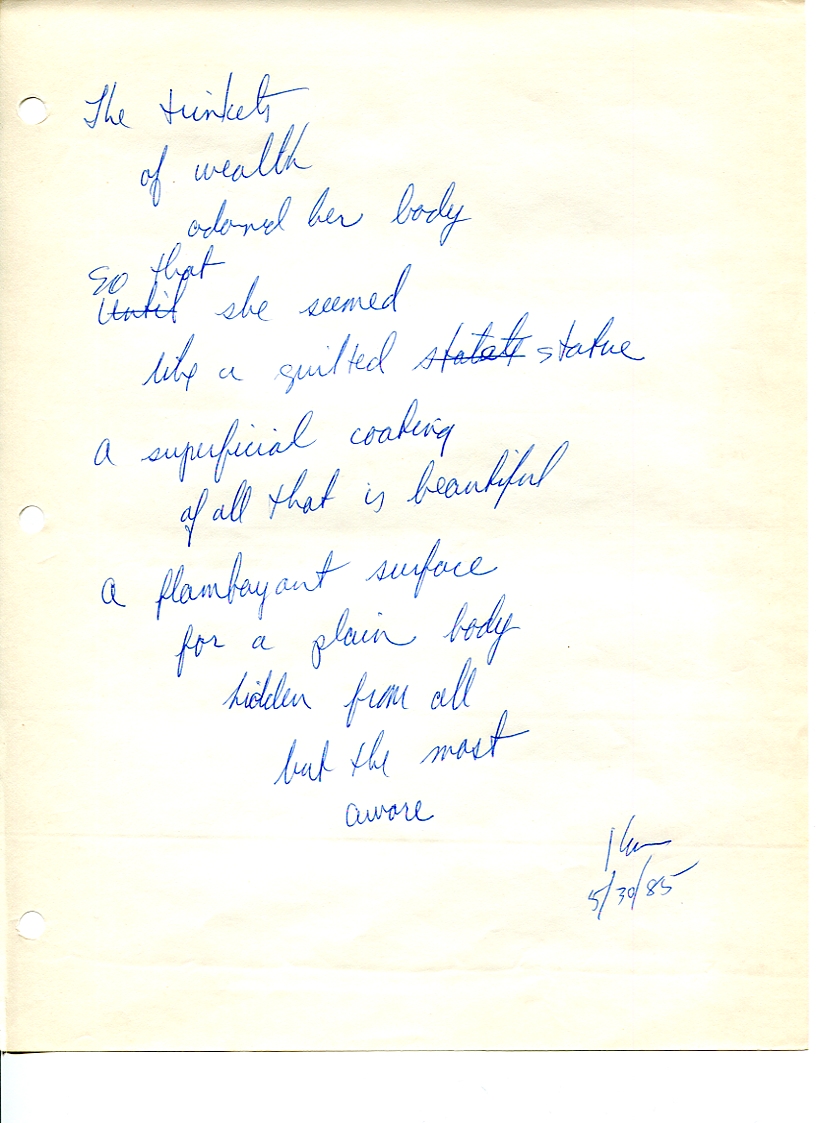 The trinkets
of wealth
adornd her body
So that
~~Until~~ she seemed
like a guilted ~~statate~~ statue
A superficial coating
of all that is beautiful
A flamboyant surface
for a plain body
hidden from all
but the most
aware
5/30/85